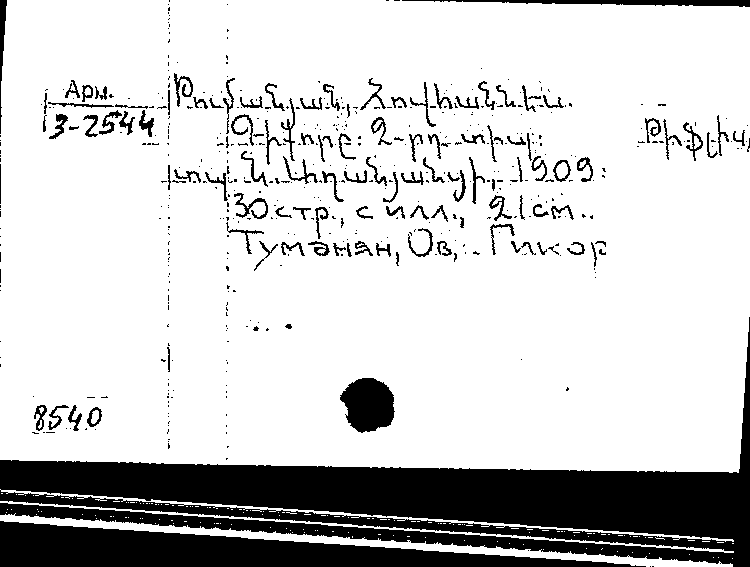 Арм.
3-2544
Թումանյան, Հովհաննես.
Գիքորը: 2-րդ տիպ: Թիֆլիս,
տպ. Ն. Աղանյանցի, 1909:
30 стр., с илл., 21 см..
Туманян, Ов, . Гикор
8540